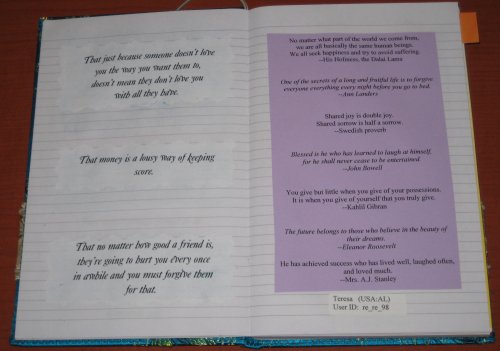 That just because someone doesn't love
you the way you want them to,
doesn't mean they don't love you
with all they have.
That money is a lousy way of keeping
score.
That no matter how good a friend is,
they're going to hurt you every once
in awhile and you must forgive them
for that.
No matter what part of the world we come from,
we are all basically the same human beings.
We all seek happiness and try to avoid suffering.
--His Holiness, the Dalai Lama
One of the secrets of a long and fruitful life is to forgive
everyone everything every night before you go to bed.
--Ann Landers
Shared joy is double joy.
Shared sorrow is half a sorrow.
--Swedish proverb
Blessed is he who has learned to laugh at himself,
for he shall never cease to be entertained
--John Bowell
You give but little when you give of your possessions.
It is when you give of yourself that you truly give.
--Kahlil Gibran
The future belongs to those who believe in the beauty of
their dreams.
--Eleanor Roosevelt
He has achieved success who has lived well, laughed often,
and loved much.
--Mrs. A.J. Stanley
Teresa (USA:AL)
User ID: re_re_98